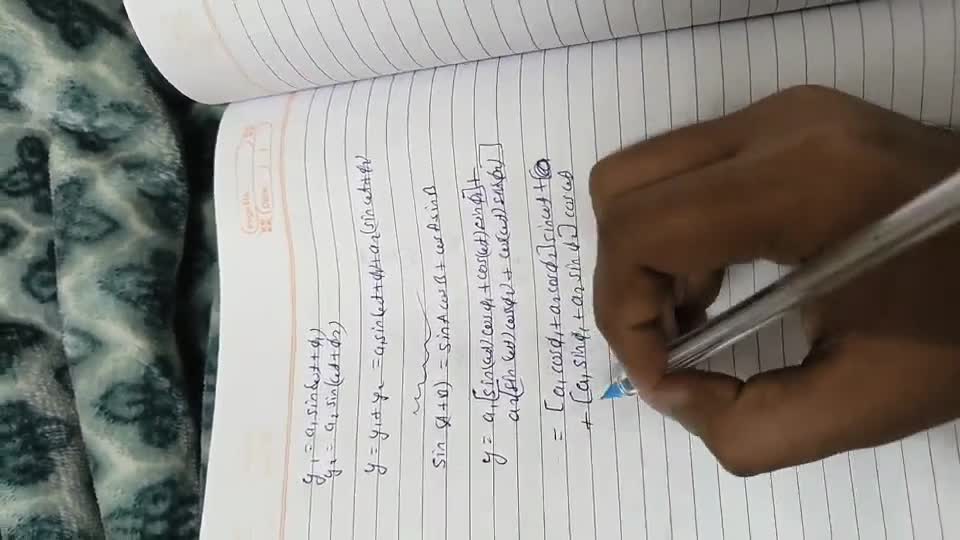 Page No.
Date
y₁ = a₁ sin(ωt + φ₁)
y₂ = a₂ sin(ωt + φ₂)
y = y₁ + y₂ = a₁ sin(ωt + φ₁) + a₂ (sin ωt + φ₂)
sin(A + B) = sin A cos B + cos A sin B
y = a₁[sin(ωt) cos φ₁ + cos(ωt) sin φ₁] +
a₂[sin(ωt) cos φ₂ + cos(ωt) sin φ₂]
= [a₁ cos φ₁ + a₂ cos φ₂] sin ωt +
+ [a₁ sin φ₁ + a₂ sin φ₂] cos ωt